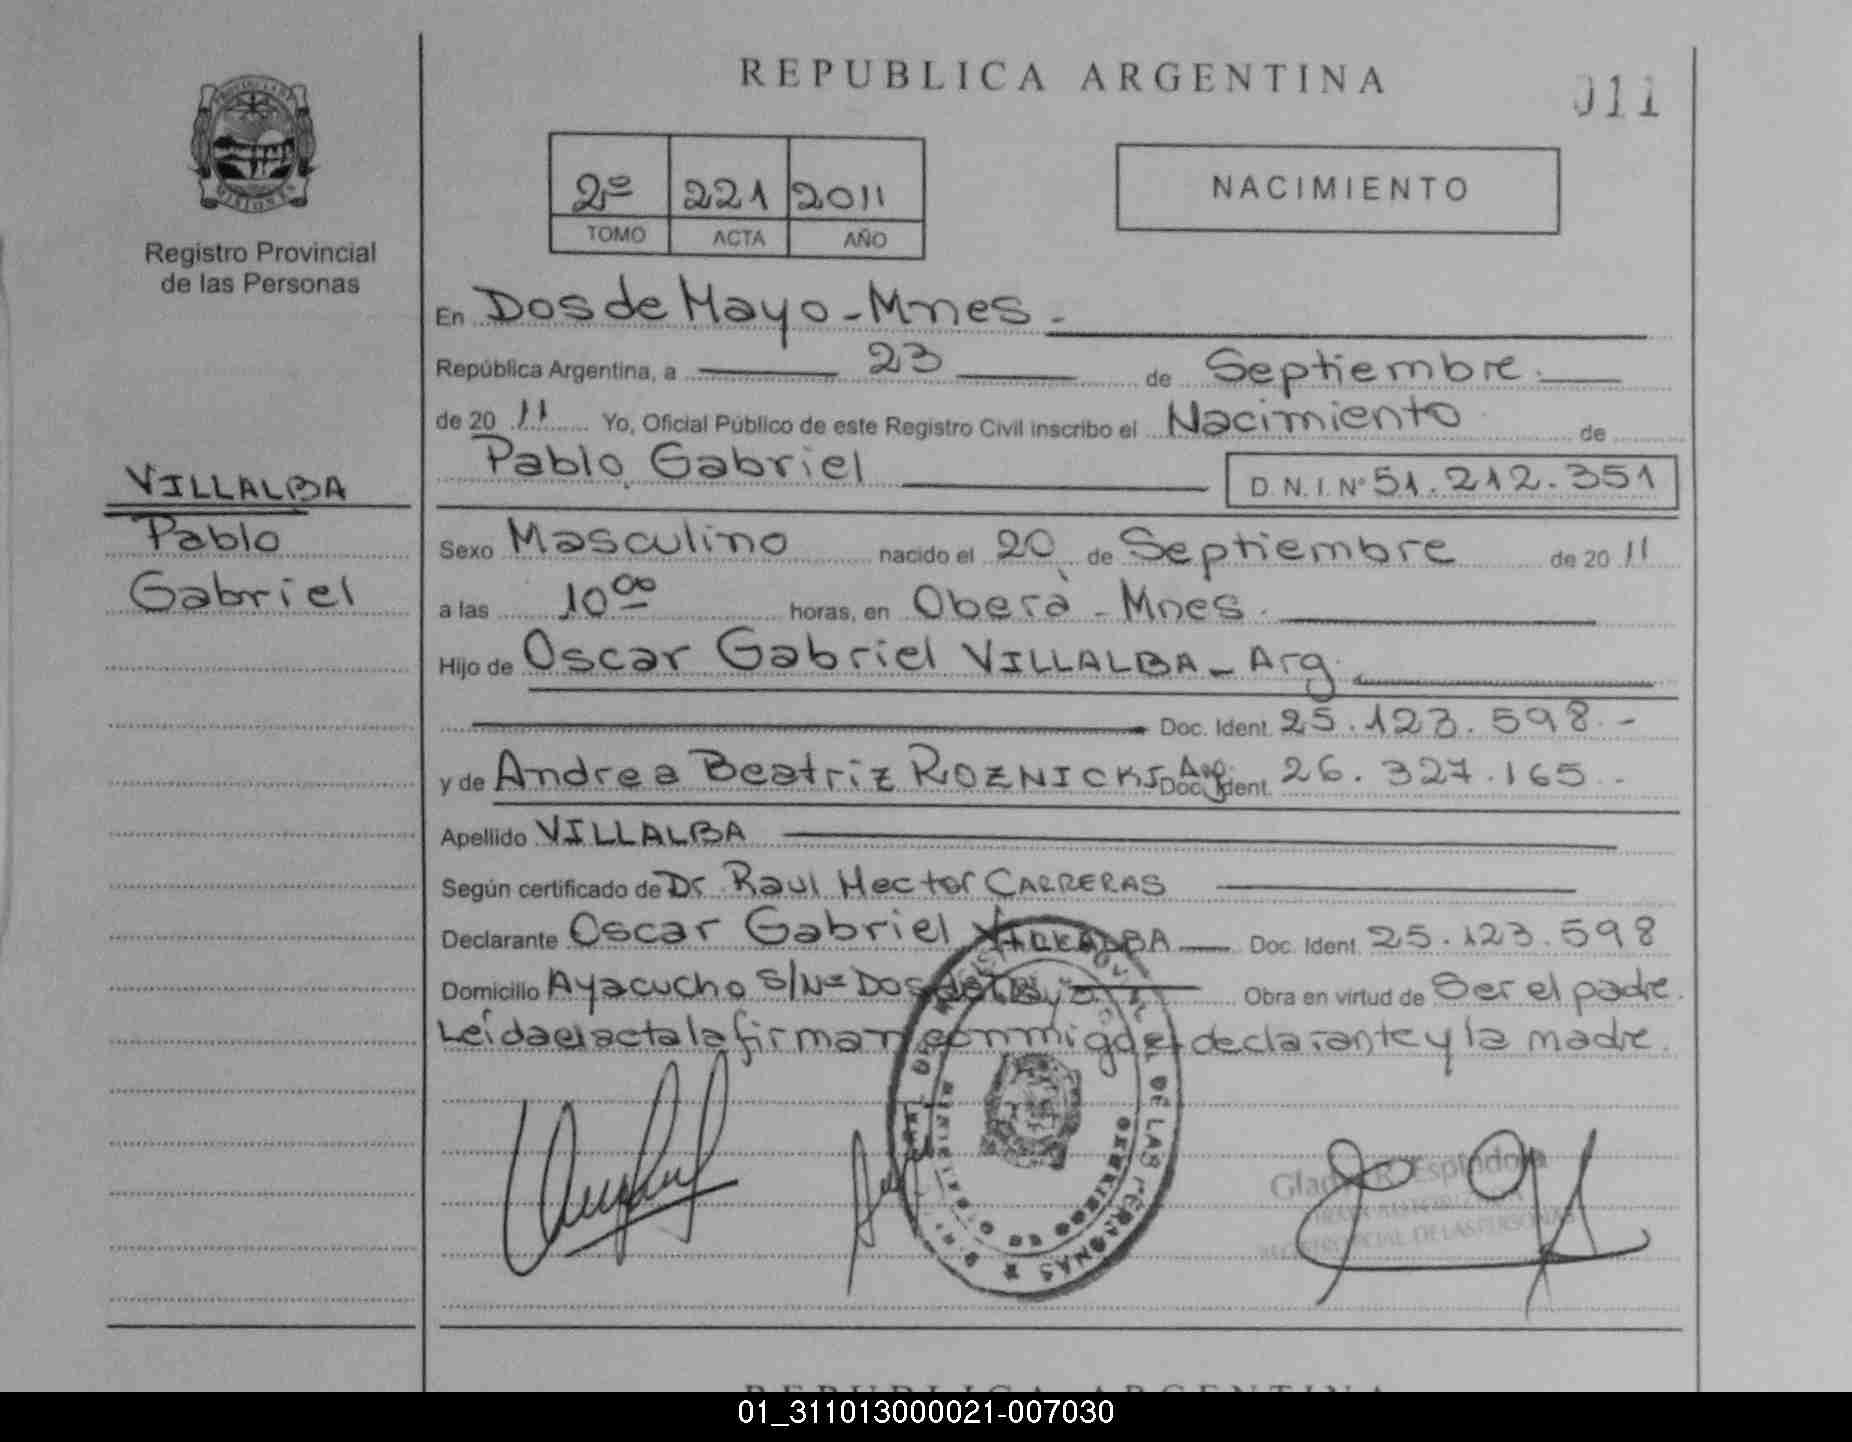 REPUBLICA ARGENTINA
011
Registro Provincial
de las Personas
2º 221 2011
TOMO ACTA AÑO
NACIMIENTO
En Dos de Mayo - Mnes.
República Argentina, a 23 de Septiembre.
de 2011 Yo, Oficial Público de este Registro Civil inscribo el Nacimiento de
Pablo Gabriel D.N.I. Nº 51.212.351
VILLALBA
Pablo
Gabriel
Sexo Masculino nacido el 20 de Septiembre de 2011
a las 10 00 horas, en Oberá - Mnes.
Hijo de Oscar Gabriel VILLALBA - Arg.
Doc. Ident. 25.123.598.-
y de Andrea Beatriz ROZNICKI Arg. Doc. Ident. 26.327.165.-
Apellido VILLALBA
Según certificado de Dr. Raul Hector CARRERAS
Declarante Oscar Gabriel VILLALBA Doc. Ident. 25.123.598
Domicilio Ayacucho S/Nº Dos de Mayo Obra en virtud de Ser el padre.
Leída el acta la firman conmigo el declarante y la madre.
DE LAS PERSONAS
Gladys R. Espindola
REGISTRO PCIAL. DE LAS PERSONAS
REPUBLICA ARGENTINA
01_311013000021-007030